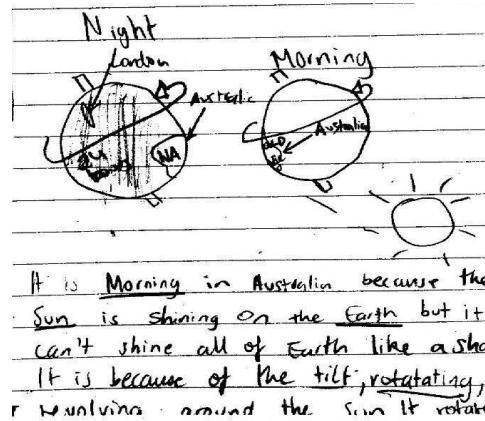 Night
London
Australia
24 hours
NA
Morning
Australia
It is Morning in Australia because the
Sun is shining on the Earth but it
can't shine all of Earth like a sha
It is because of the tilt, rotatating,
revolving around the Sun It rotate